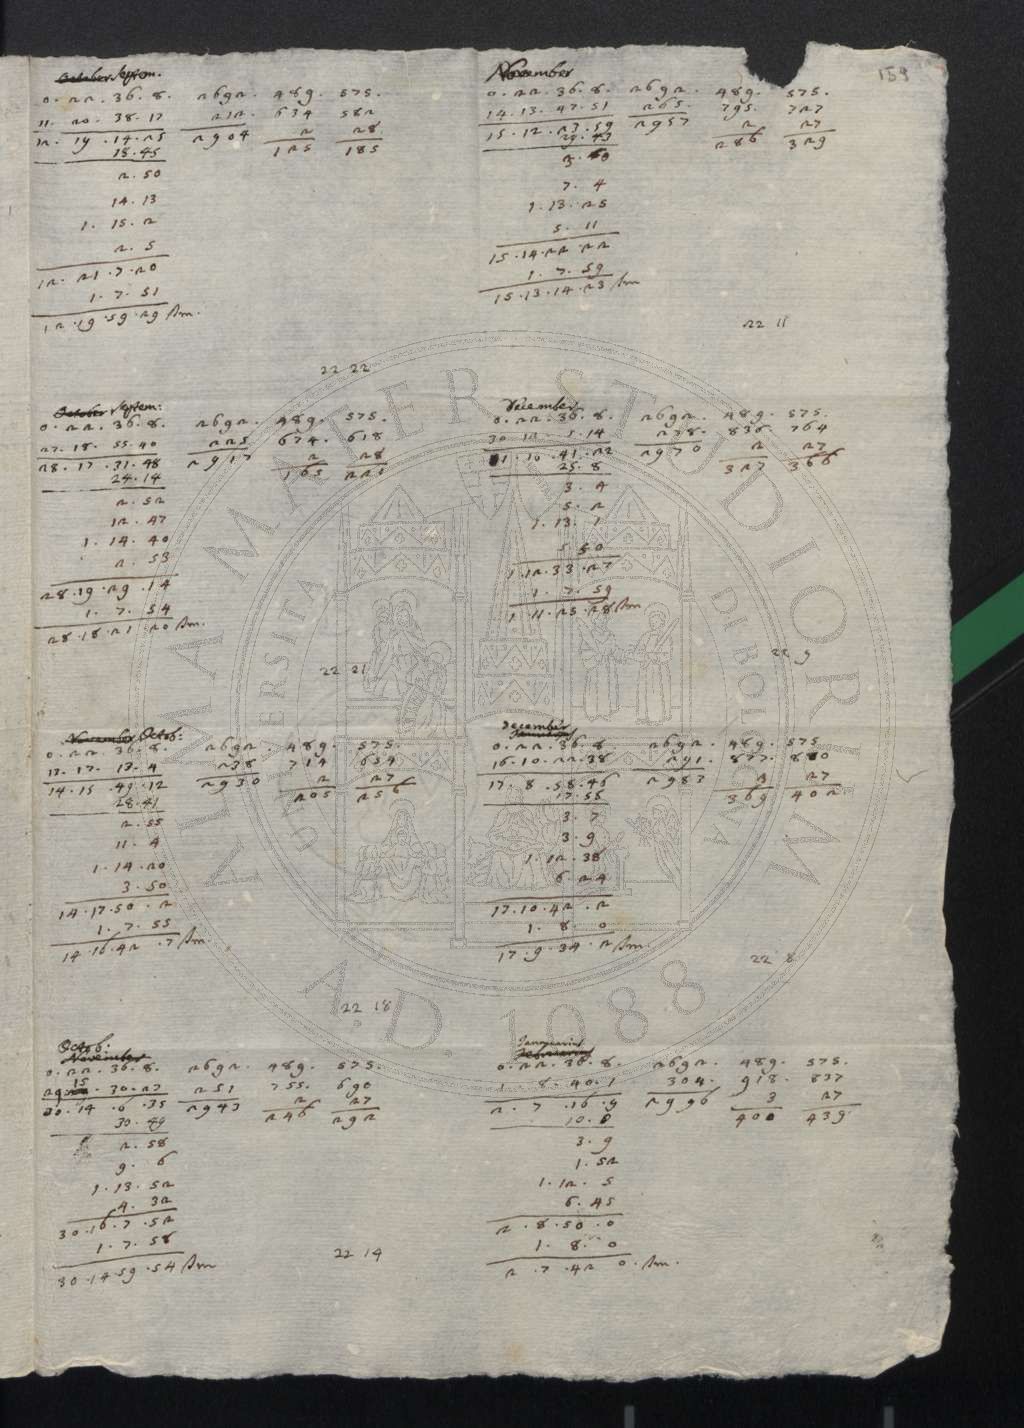 159
Septem.
0. 22. 36. 8. 2692. 489. 575.
11. 20. 38. 17 212. 634 582
12. 19. 14. 25 2904 2 28
18. 45 125 185
2. 50
14. 13
1. 15. 2
2. 5
12. 21. 7. 20
1. 7. 51
12. 19. 59. 29
22 22
Septem:
0. 22. 36. 8. 2692. 489. 575.
27. 18. 55. 40 225 674. 618
28. 17. 31. 48 2917 2 28
24. 14 165
2. 52
12. 47
1. 14. 40
2. 53
28. 19. 29. 14
1. 7. 54
28. 18. 21. 20
22 21
November Octob:
0. 22. 36. 8. 2692. 489. 575.
13. 17. 13. 4 238 714 654
14. 15. 49. 12 2930 2 27
28. 41 205 256
2. 55
11. 4
1. 14. 20
3. 50
14. 17. 50. 2
1. 7. 55
14. 16. 42. 7
22 18
Octob:
November
0. 22. 36. 8. 2692. 489. 575.
29. 15. 30. 27 251 755. 690
30. 14. 6. 35 2943 2 27
30. 49 246 292
2. 58
9. 6
1. 13. 52
4. 32
30. 16. 7. 52
1. 7. 58
30. 14. 59. 54
22 14
November
0. 22. 36. 8. 2692. 489. 575.
14. 13. 47. 51 265. 795. 727
15. 12. 23. 59 2957 2 27
29. 43 286 329
7. 4
1. 13. 25
5. 11
15. 14. 22. 22
1. 7. 59
15. 13. 14. 23
22 11
December
0. 22. 36. 8. 2692. 489. 575.
30. 12. 5. 14 278. 838. 764
1. 10. 41. 22 2970 2 27
25. 8 327 366
3. 4
5. 2
1. 13. 1
5. 50
1. 12. 33. 27
1. 7. 59
1. 11. 25. 28
22 9
December
0. 22. 36. 8. 2692. 489. 575
16. 10. 22. 38 291. 877. 800
17. 8. 58. 46 2983 2 27
17. 58 369 402
3. 7
3. 9
1. 12. 38
6. 24
17. 10. 42. 2
1. 8. 0
17. 9. 34. 2
22 8
Januarius
0. 22. 36. 8. 2692. 489. 575.
1. 8. 40. 1 304. 918. 837
2. 7. 16. 9 2996 3 27
10. 0 400 439
3. 9
1. 52
1. 12. 5
6. 45
2. 8. 50. 0
1. 8. 0
2. 7. 42 0.
ALMA MATER STUDIORUM
UNIVERSITÀ DI BOLOGNA
A.D. 1088